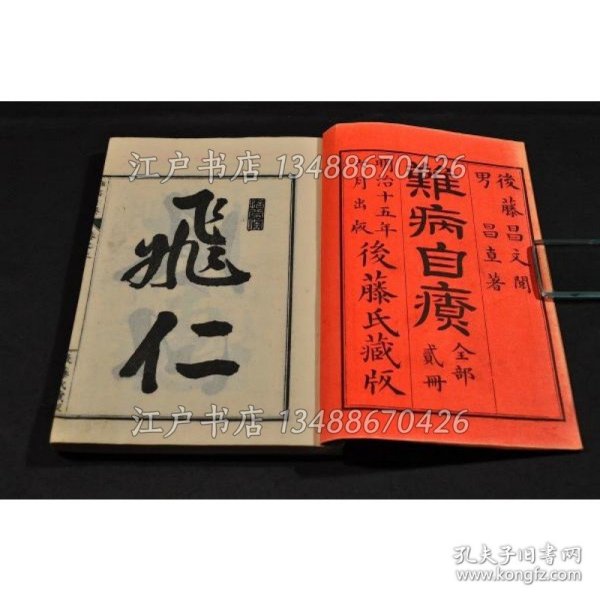 後藤昌文閲
男 昌直著
難病自療
全部
貳冊
明治十五年
月出版
後藤氏藏版
飛仁
江户书店 13488670426
江户书店 13488670426
孔夫子旧书网
www.kongfz.com